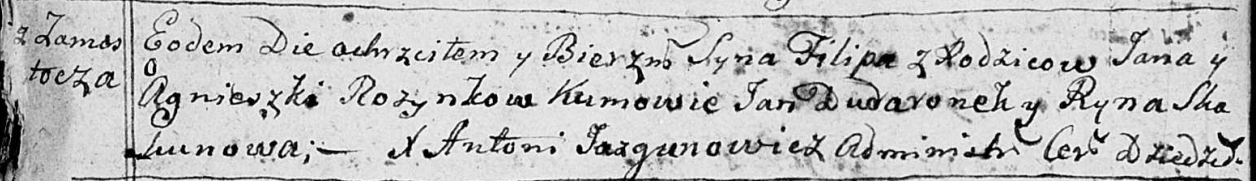 z Zamos
tocza
Eodem Die ochrzciłem y Bierzm̃ Syna Filipa z Rodzicow Jana y
Agnieszki Rozynkow Kumowie Jan Dudaronek y Ryna Ska
kunowa; — X Antoni Jazgunowicz Administr̃ Cer̃ Dziedził.